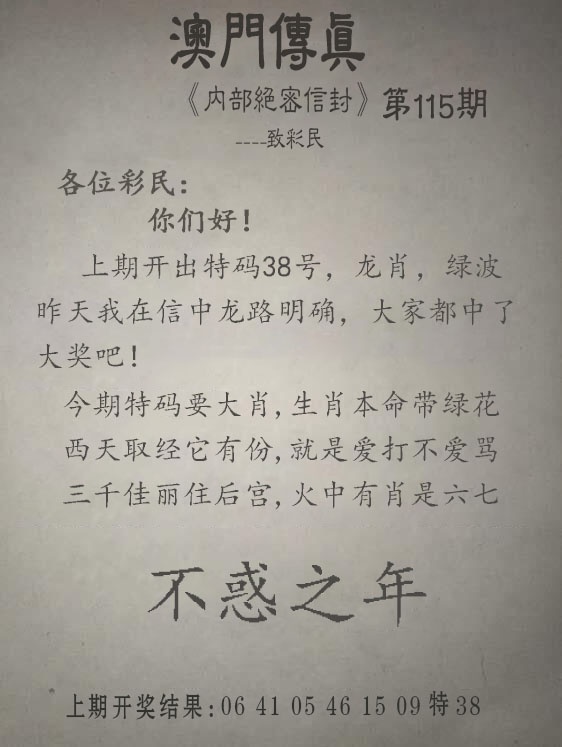 澳門傳真
《内部絕密信封》第115期
----致彩民
各位彩民：
你们好！
上期开出特码38号，龙肖，绿波
昨天我在信中龙路明确，大家都中了
大奖吧！
今期特码要大肖,生肖本命带绿花
西天取经它有份,就是爱打不爱骂
三千佳丽住后宫,火中有肖是六七
不惑之年
上期开奖结果:06 41 05 46 15 09 特38